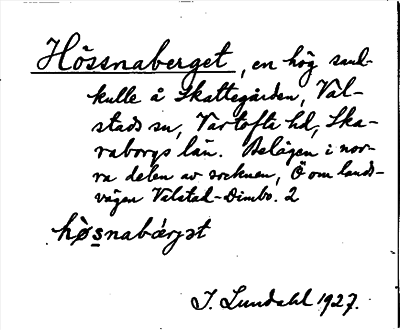 Hössnaberget, en hög sand-
kulle å Skattegården, Val-
stads sn, Vartofta hd, Ska-
raborgs län. Belägen i nor-
ra delen av socknen, Ö om lands-
vägen Valstad-Dimbo. 2
hòsnabærjət
J. Lundahl 1927.